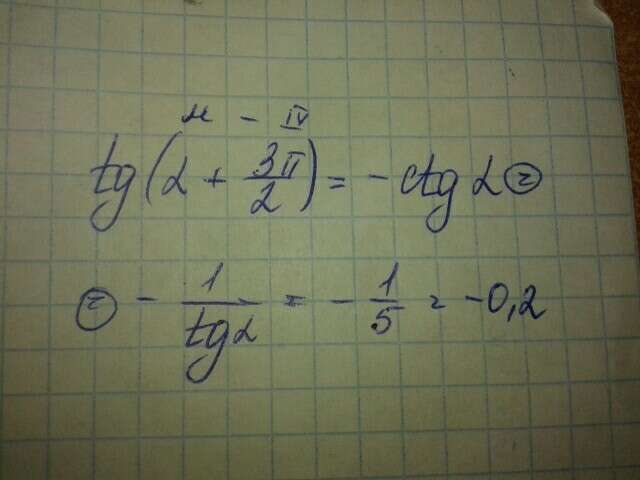 м - IV
tg(α + 3π/2) = -ctg α =
= - 1/tgα = - 1/5 = -0,2